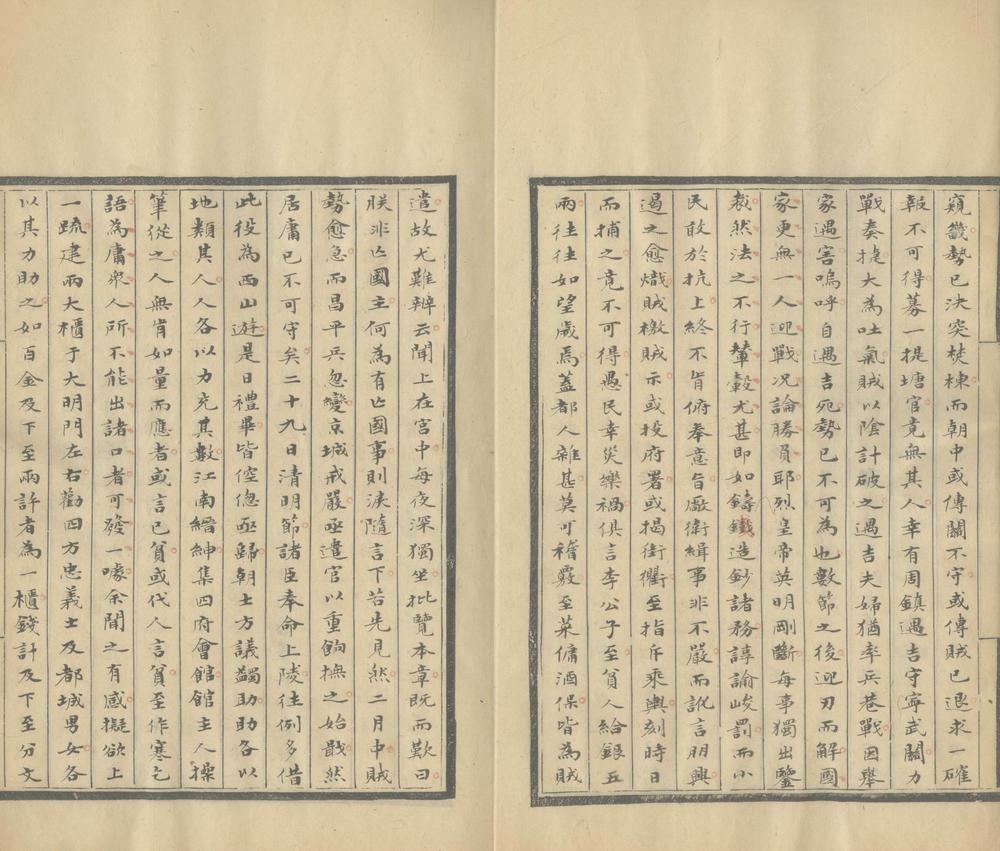 窺畿勢已決突焚棟而朝中或傳關不守或傳賊已退求一確
報不可得募一提塘官竟無其人幸有周鎮遇吉守寧武關力
戰奏捷大為吐氣賊以陰計破之遇吉夫婦猶率兵巷戰因舉
家遇害嗚呼自遇吉死勢已不可為也數節之後迎刃而解國
家更無一人迎戰況論勝員耶烈皇帝英明剛斷每事獨出鑒
裁然法之不行輦轂尤甚即如鑄鐵造鈔諸務諄諭峻罰而小
民敢於抗上終不肯俯奉意旨廠衛緝事非不嚴而訛言朋興
遏之愈熾賊檄賊示或投府署或揭街衢至指斥乘輿刻時日
而捕之竟不可得愚民幸災樂禍俱言李公子至貧人給銀五
兩往往如望歲焉蓋都人雜甚莫可稽覈至菜傭酒保皆為賊
遣故尤難辨云聞上在宮中每夜深獨坐批覽本章既而歎曰
朕非亡國主何為有亡國事則淚隨言下若先見然二月中賊
勢愈急而昌平兵忽變京城戒嚴亟遣官以重餉撫之始戢然
居庸已不可守矣二十九日清明節諸臣奉命上陵往例多借
此役為西山遊是日禮畢皆倥偬亟歸朝士方議蠲助助各以
地類其人人各以力充其數江南縉紳集四府會館館主人操
筆從之人無肯如量而應者或言已貧或代人言貧至作寒乞
語為庸衆人所不能出諸口者可發一噱余聞之有感擬欲上
一疏建兩大櫃于大明門左右勸四方忠義士及都城男女各
以其力助之如百金及下至兩許者為一櫃錢計及下至分文